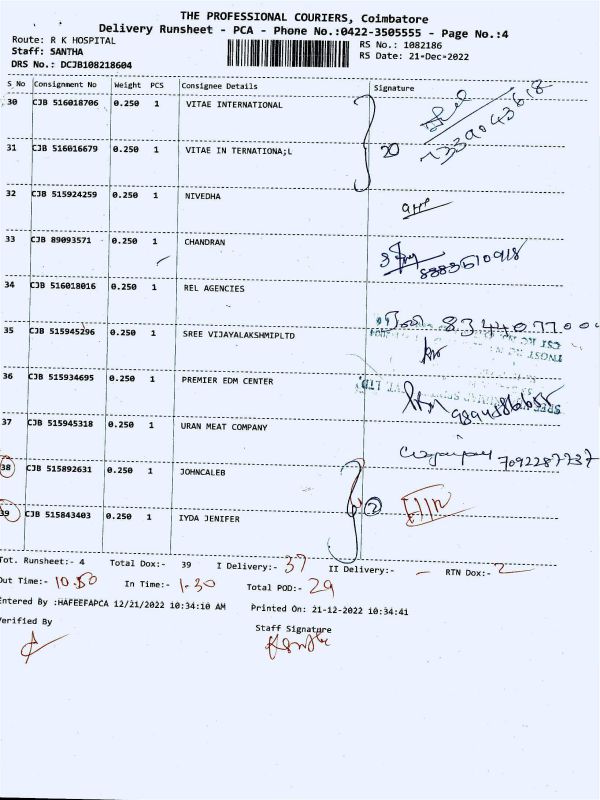 THE PROFESSIONAL COURIERS, Coimbatore
Delivery Runsheet - PCA - Phone No.:0422-3505555 - Page No.:4
Route: R K HOSPITAL
Staff: SANTHA
DRS No.: DCJB108218604
RS No.: 1082186
RS Date: 21-Dec-2022
S_No Consignment No Weight PCS Consignee Details Signature
30 CJB 516018706 0.250 1 VITAE INTERNATIONAL
31 CJB 516016679 0.250 1 VITAE IN TERNATIONA;L
32 CJB 515924259 0.250 1 NIVEDHA
33 CJB 89093571 0.250 1 CHANDRAN 8883510918
34 CJB 516018016 0.250 1 REL AGENCIES
35 CJB 515945296 0.250 1 SREE VIJAYALAKSHMIPLTD
36 CJB 515934695 0.250 1 PREMIER EDM CENTER
37 CJB 515945318 0.250 1 URAN MEAT COMPANY 7092287737
38 CJB 515892631 0.250 1 JOHNCALEB
39 CJB 515843403 0.250 1 IYDA JENIFER
2
Tot. Runsheet:- 4 Total Dox:- 39 I Delivery:- 37 II Delivery:- - RTN Dox:- 2
Out Time:- 10.50 In Time:- 1.30 Total POD:- 29
Entered By :HAFEEFAPCA 12/21/2022 10:34:10 AM Printed On: 21-12-2022 10:34:41
Verified By
Staff Signature